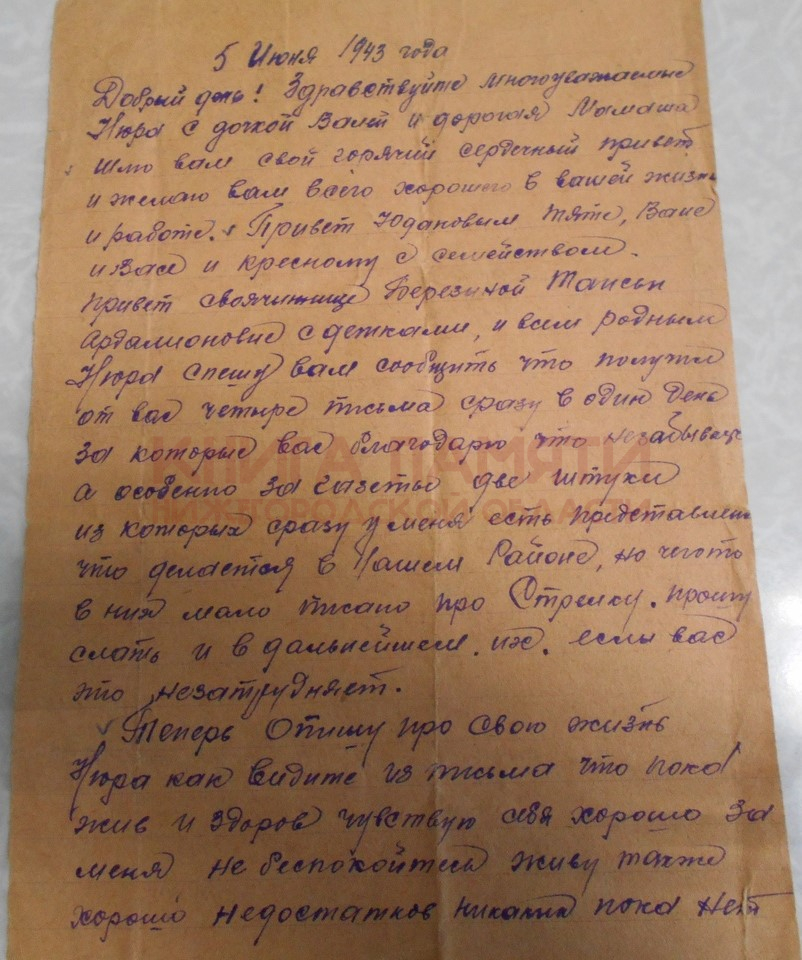 5 Июня 1943 года
Добрый день! Здравствуйте многоуважаемые
Нюра с дочкой Валей и дорогая Мамаша
шлю вам свой горячий сердечный привет
и желаю вам всего хорошего в вашей жизни
и работе. Привет Юдановым тяте, Ване
и Васе и кресному с семейством.
привет своячинице Березиной Таисьи
Ардалионовне с детками, и всем родным
Нюра спешу вам сообщить что получил
от вас четыре письма сразу в один день
за которые вас благодарю что незабываете
КНИГА ПАМЯТИ
а особенно за газеты две штуки
НИЖЕГОРОДСКОЙ ОБЛАСТИ
из которых сразу у меня есть представление
что делается в Нашем Районе, но чегото
в них мало писано про Стрелку. прошу
слать и в дальнейшем. их. если вас
это незатрудняет.
Теперь Опишу про свою жизнь
Нюра как видите из письма что пока
жив и здоров чувствую себя хорошо За
меня не беспокойтесь живу также
хорошо недостатков никаких пока нет